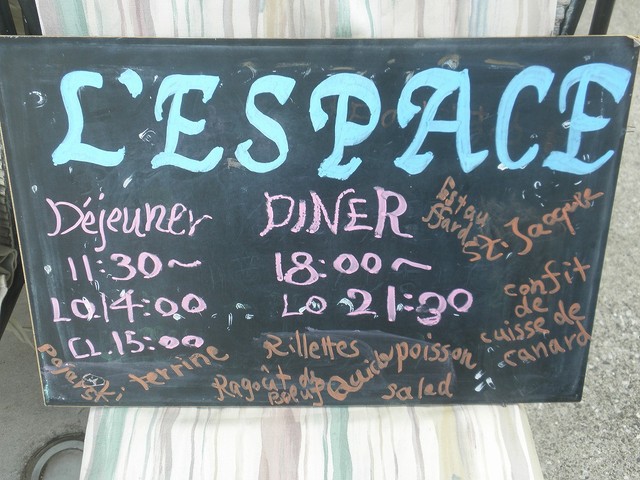 L'ESPACE
Déjeuner
11:30~
LO.14:00
CL.15:00
DINER
18:00~
LO 21:30
St. Jacques
confit
de
cuisse de
canard
pojarski
terrine
Rillettes
Ragoût de
Boeuf
Quiche
poisson
salad